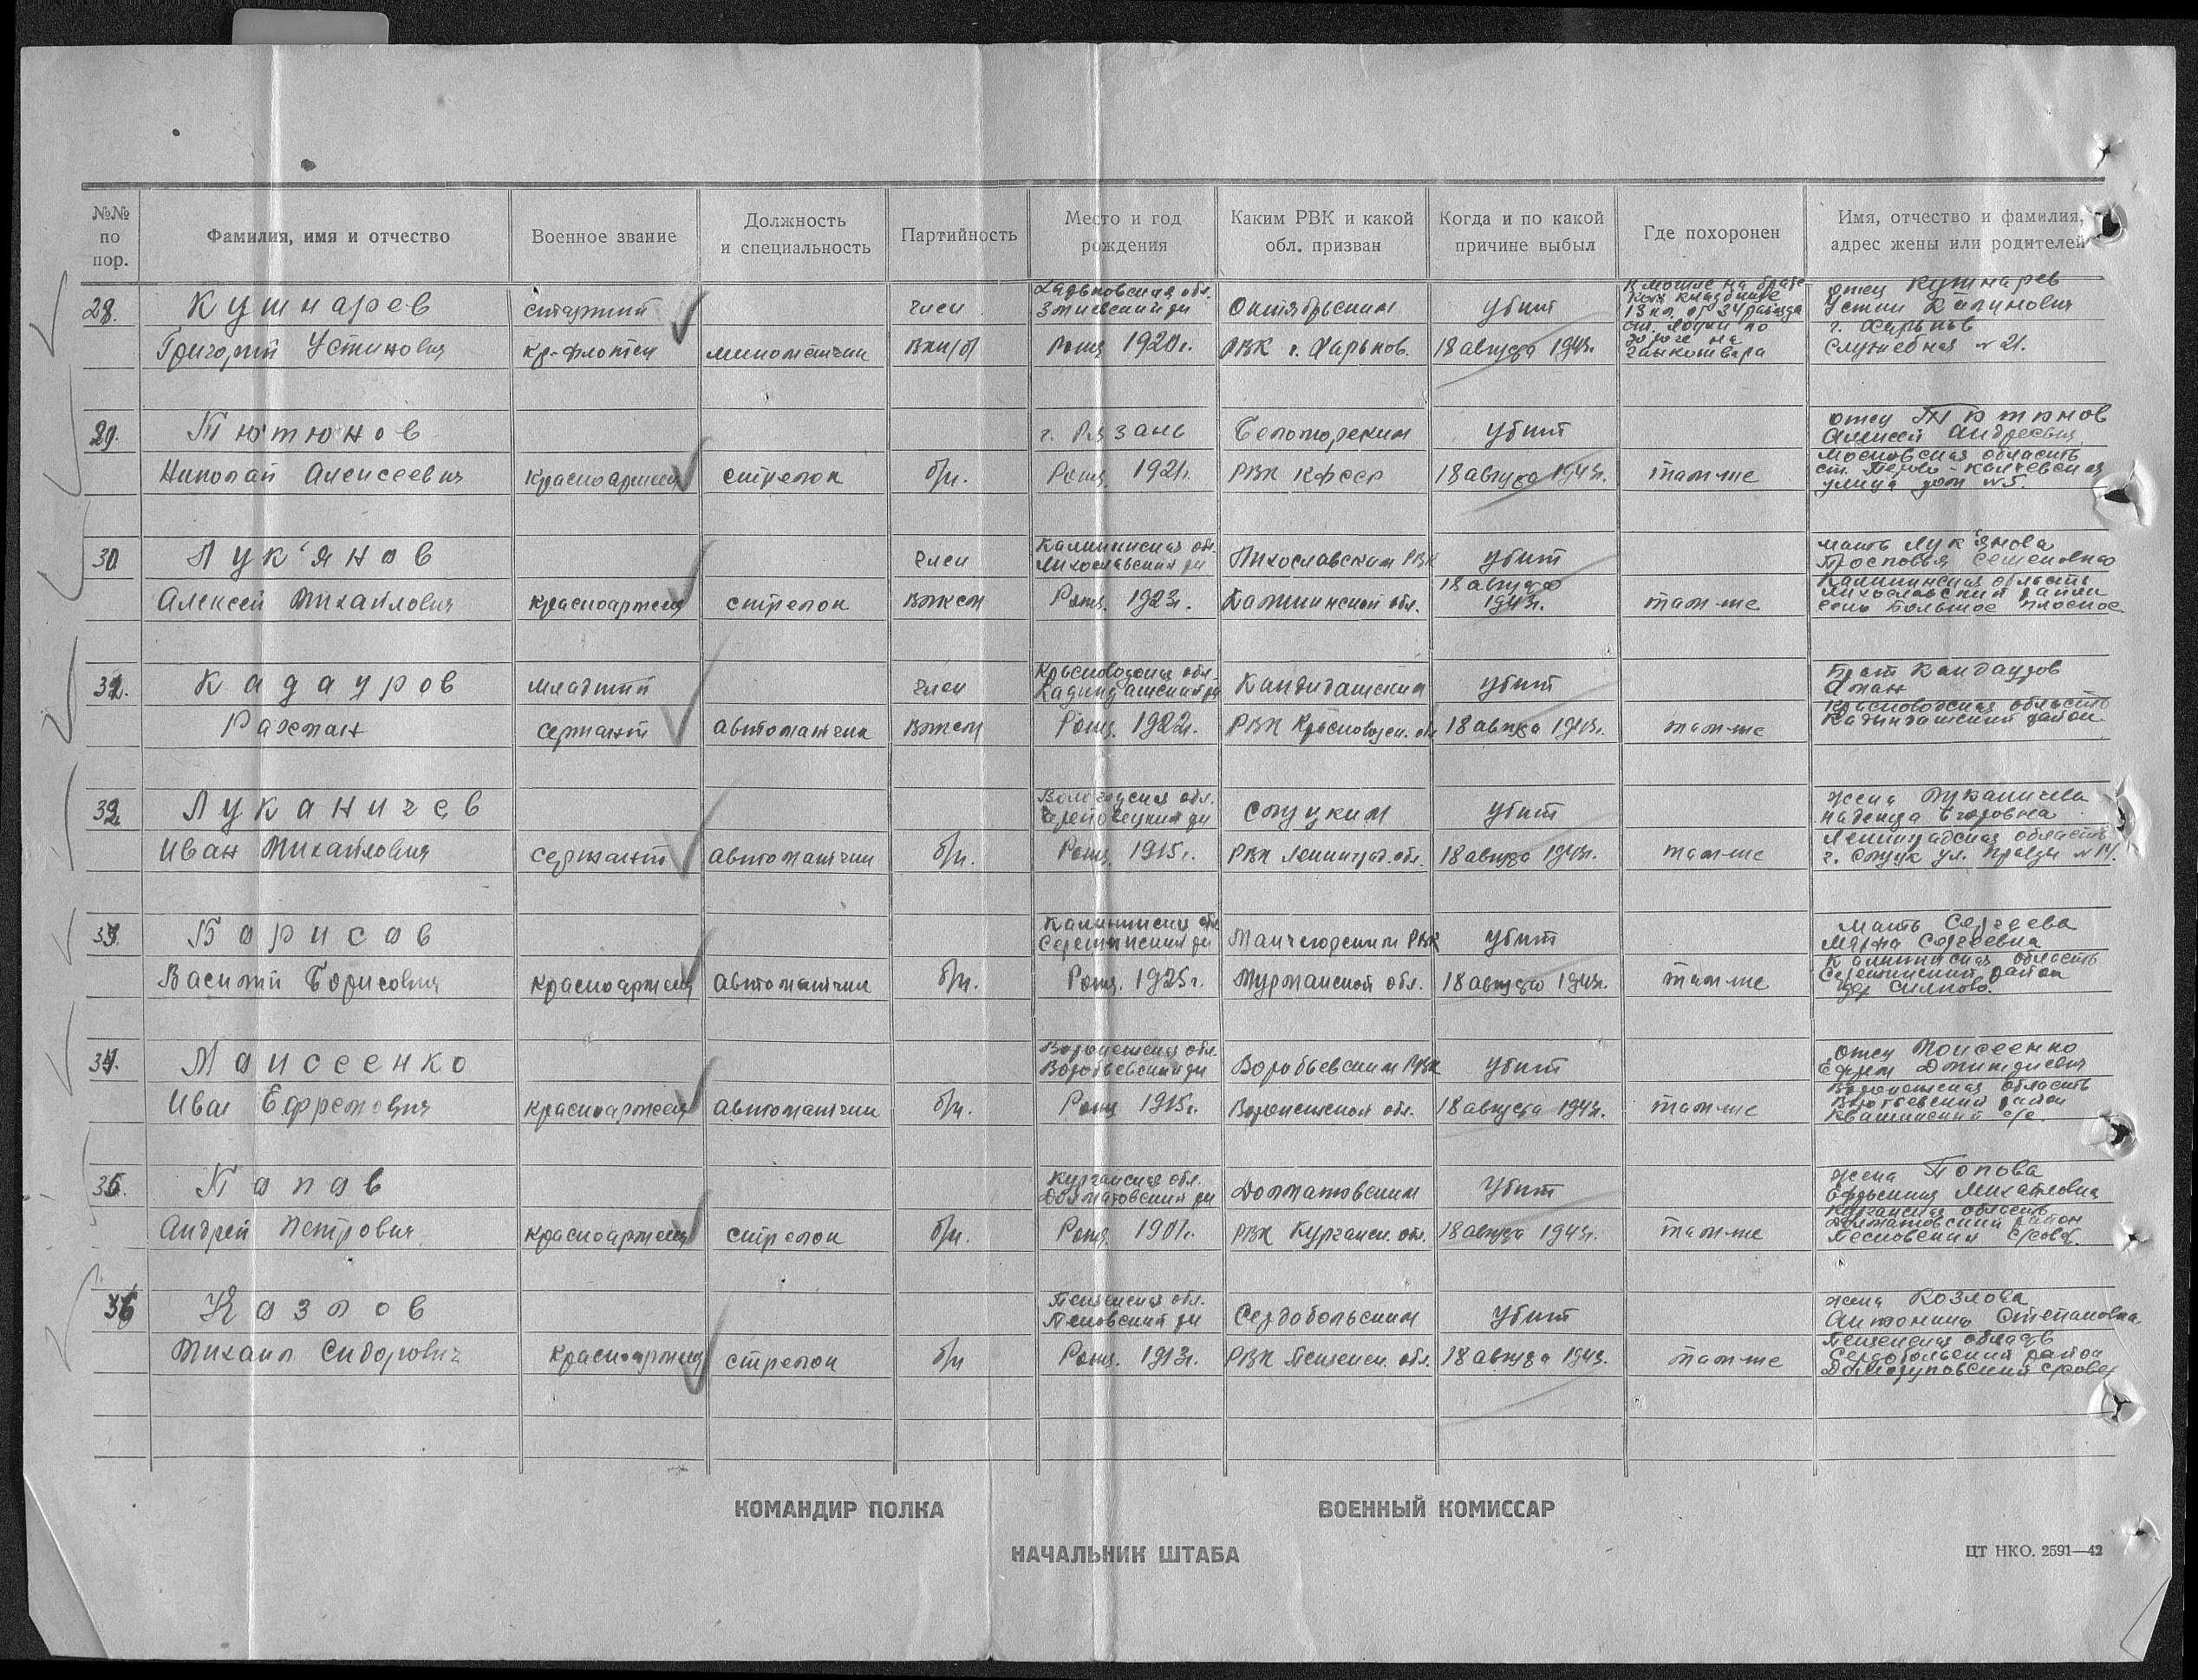 №№ по пор.
Фамилия, имя и отчество
Военное звание
Должность и специальность
Партийность
Место и год рождения
Каким РВК и какой обл. призван
Когда и по какой причине выбыл
Где похоронен
Имя, отчество и фамилия, адрес жены или родителей
28. Кушнарев старший член Харьковская обл. Змиевский р-н Октябрьским убит отец Кушнарев
Григорий Устинович кр-флотец минометчик ВКП/б/ Рожд. 1920г. РВК г. Харьков. 18 августа 1943г. г. Харьков
Служебная № 21.
29. Тютюнов г. Рязань Беломорским убит отец Тютюнов
Алексей Андреевич
Николай Алексеевич красноармеец стрелок б/п. Рожд. 1921г. РВК КФССР 18 августа 1943г. там-же Московская область
улица дом №5.
30 Лук'янов член Калининская обл. Лихославский р-н Лихославским РВК убит мать Лук'янова
Алексей Михайлович красноармеец стрелок ВЛКСМ Рожд. 1923г. Калининской обл. 18 августа 1943г. там-же Калининская область
Лихославский район
село Большое Плоское
31. Кадауров младший член Красноводская обл. убит Брат Кандауров
Рахман сержант автоматчик ВЛКСМ Рожд. 1922г. РВК Красноводск. обл. 18 августа 1943г. там-же Красноводская область
32. Луканичев Вологодская обл. Череповецкий р-н Слуцким убит жена Луканичева
Надежда Егоровна
Иван Михайлович сержант автоматчик б/п. Рожд. 1915г. РВК Ленинград. обл. 18 августа 1943г. там-же Ленинградская область
г. Слуцк ул. Правды
33. Борисов Калининская обл. Мончегорским РВК убит Мать Сергеева
Марфа Сергеевна
Василий Борисович красноармеец автоматчик б/п. Рожд. 1925г. Мурманской обл. 18 августа 1943г. там-же Калининская область
район
34. Моисеенко Воронежская обл. Воробьевский р-н Воробьевским РВК убит отец Моисеенко
Ефрем
Иван Ефремович красноармеец автоматчик б/п. Рожд. 1915г. Воронежской обл. 18 августа 1943г. там-же Воронежская область
Воробьевский район
Квашинский с/с.
35. Попов Курганская обл. Долматовский р-н Долматовским Убит жена Попова
Михайловна
Андрей Петрович красноармеец стрелок б/п. Рожд. 1901г. РВК Курганск. обл. 18 августа 1943г. там-же Курганская область
Долматовский район
36 Козлов Пензенская обл. Сердобольским Убит жена Козлова
Антонина Степановна
Михаил Сидорович красноармеец стрелок б/п Рожд. 1913г. РВК Пензенск. обл. 18 августа 1943г. там-же Пензенская область
Сердобольский район
КОМАНДИР ПОЛКА
ВОЕННЫЙ КОМИССАР
НАЧАЛЬНИК ШТАБА
ЦТ НКО. 2591—42